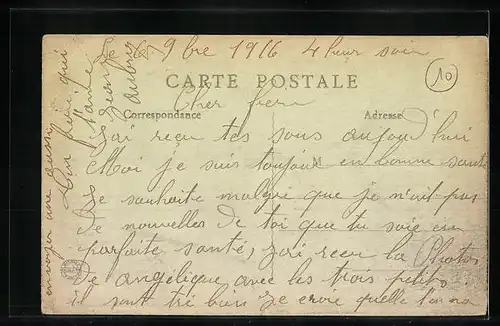 Le 9bre 1916 4 heur soir
10
CARTE POSTALE
Cher frere
Correspondance
Adresse
J'ai reçu tes sous aujourd'hui
Moi je suis toujour en bonne santé
Je souhaite malgre que je n'ait pas
de nouvelles de toi que tu soie en
parfaite santé, j'ai reçu la Photos
de angélique avec les trois petits
il sont tré bien Je croie quelle t'en a
envoyer une aussi
Ton frere qui
t'aime